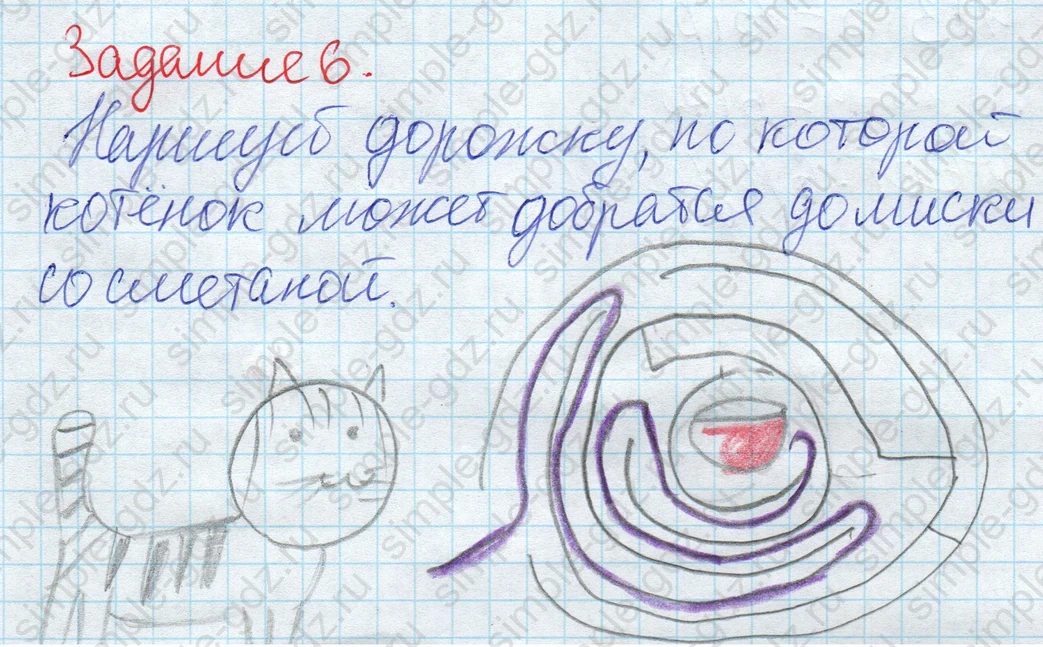 Задание 6.
Нарисуй дорожку, по которой
котёнок может добратся до миски
со сметаной.
simple-gdz.ru